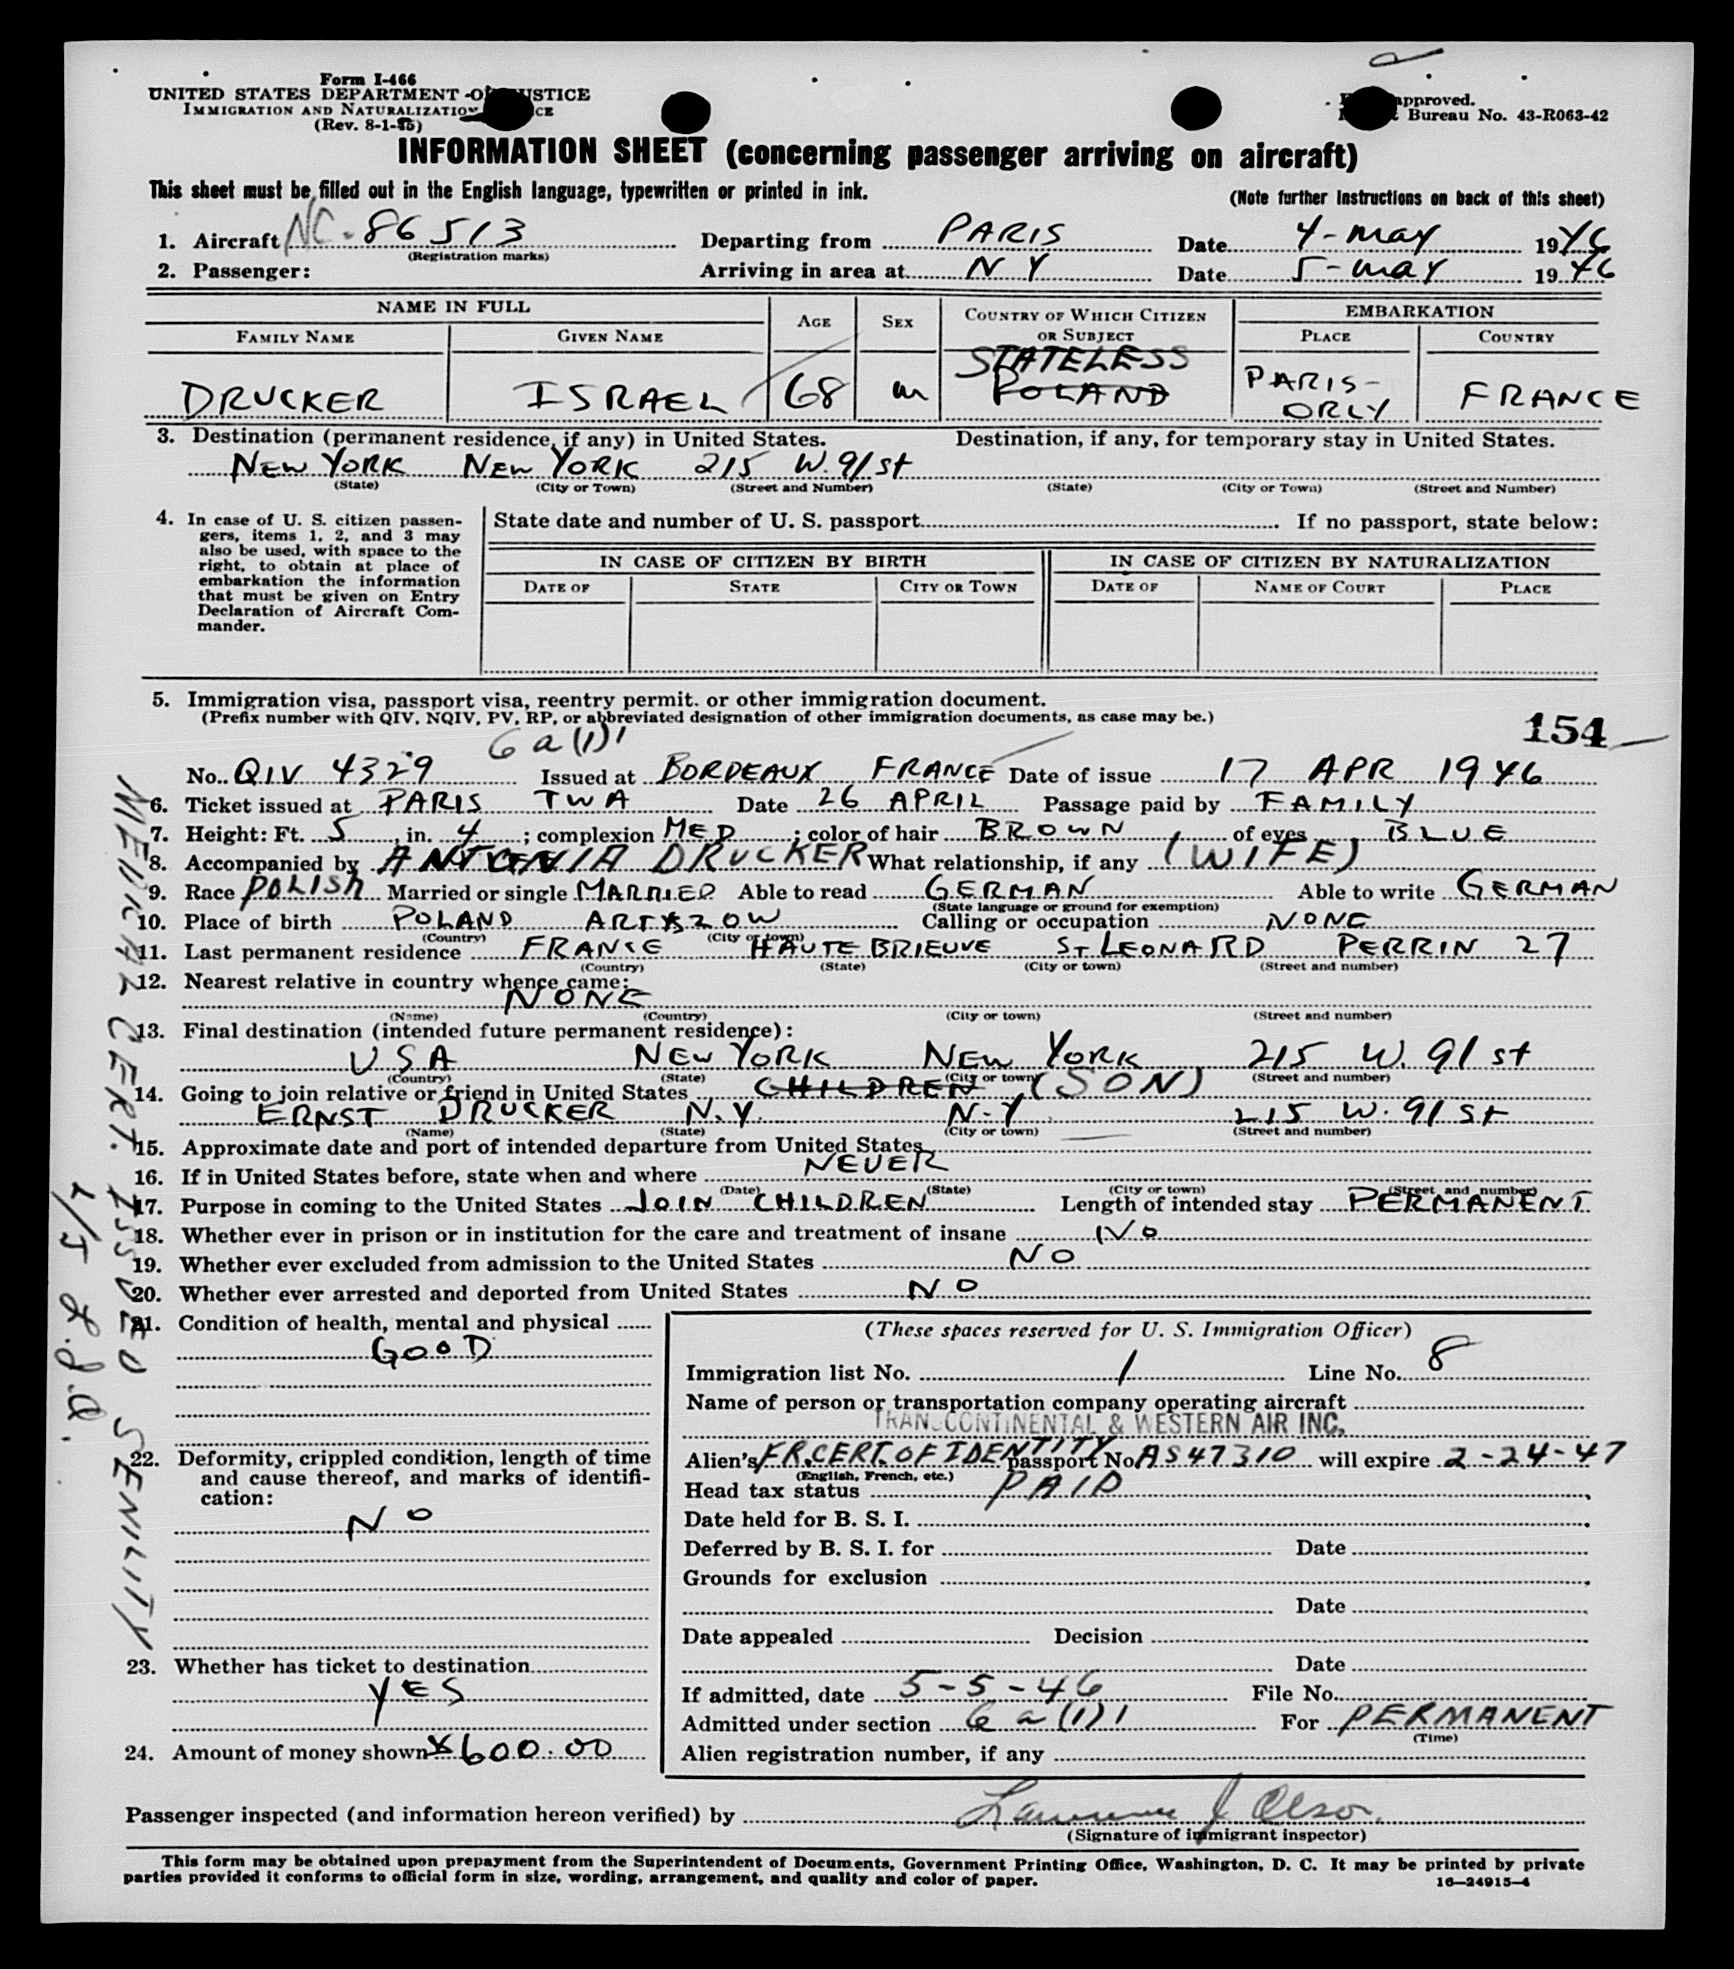 Form I-466
UNITED STATES DEPARTMENT OF JUSTICE
IMMIGRATION AND NATURALIZATION SERVICE
(Rev. 8-1-45)
approved.
Bureau No. 43-R063-42
INFORMATION SHEET (concerning passenger arriving on aircraft)
This sheet must be filled out in the English language, typewritten or printed in ink.
(Note further instructions on back of this sheet)
1. Aircraft NC-86513 Departing from PARIS Date 4-MAY 1946
(Registration marks)
2. Passenger: Arriving in area at N Y Date 5-MAY 1946
NAME IN FULL AGE SEX COUNTRY OF WHICH CITIZEN OR SUBJECT EMBARKATION
FAMILY NAME GIVEN NAME PLACE COUNTRY
STATELESS
DRUCKER ISRAEL 68 M POLAND PARIS-ORLY FRANCE
3. Destination (permanent residence, if any) in United States. Destination, if any, for temporary stay in United States.
NEW YORK NEW YORK 215 W. 91 St
(State) (City or Town) (Street and Number) (State) (City or Town) (Street and Number)
4. In case of U. S. citizen passengers, items 1, 2, and 3 may also be used, with space to the right, to obtain at place of embarkation the information that must be given on Entry Declaration of Aircraft Commander.
State date and number of U. S. passport. If no passport, state below:
IN CASE OF CITIZEN BY BIRTH IN CASE OF CITIZEN BY NATURALIZATION
DATE OF STATE CITY OR TOWN DATE OF NAME OF COURT PLACE
5. Immigration visa, passport visa, reentry permit, or other immigration document.
(Prefix number with QIV, NQIV, PV, RP, or abbreviated designation of other immigration documents, as case may be.)
154
6 a (1) 1
No. QIV 4329 Issued at BORDEAUX FRANCE Date of issue 17 APR 1946
6. Ticket issued at PARIS TWA Date 26 APRIL Passage paid by FAMILY
7. Height: Ft. 5, in. 4; complexion MED; color of hair BROWN, of eyes BLUE
8. Accompanied by ANTONIA DRUCKER What relationship, if any (WIFE)
9. Race POLISH Married or single MARRIED Able to read GERMAN Able to write GERMAN
(State language or ground for exemption)
10. Place of birth POLAND Calling or occupation NONE
(Country) (City or town)
11. Last permanent residence FRANCE HAUTE BRIEUVE ST LEONARD PERRIN 27
(Country) (State) (City or town) (Street and number)
12. Nearest relative in country whence came:
NONE
(Name) (Country) (City or town) (Street and number)
13. Final destination (intended future permanent residence):
USA NEW YORK NEW YORK 215 W. 91 St
(Country) (State) (City or town) (Street and number)
14. Going to join relative or friend in United States CHILDREN (SON)
ERNST DRUCKER N.Y. N.Y. 215 W. 91 St
(Name) (State) (City or town) (Street and number)
15. Approximate date and port of intended departure from United States
16. If in United States before, state when and where NEVER
(Date) (State) (City or town) (Street and number)
17. Purpose in coming to the United States JOIN CHILDREN Length of intended stay PERMANENT
18. Whether ever in prison or in institution for the care and treatment of insane NO
19. Whether ever excluded from admission to the United States NO
20. Whether ever arrested and deported from United States NO
21. Condition of health, mental and physical
GOOD
22. Deformity, crippled condition, length of time and cause thereof, and marks of identification:
NO
23. Whether has ticket to destination
YES
24. Amount of money shown $600.00
(These spaces reserved for U. S. Immigration Officer)
Immigration list No. 1 Line No. 8
Name of person or transportation company operating aircraft
TRANSCONTINENTAL & WESTERN AIR INC.
Alien's FR. CERT. OF IDENTITY passport No. AS47310 will expire 2-24-47
(English, French, etc.)
Head tax status PAID
Date held for B. S. I.
Deferred by B. S. I. for Date
Grounds for exclusion
Date
Date appealed Decision
Date
If admitted, date 5-5-46 File No.
Admitted under section 6 a (1) 1 For PERMANENT
(Time)
Alien registration number, if any
Passenger inspected (and information hereon verified) by Lawrence J Olson
(Signature of immigrant inspector)
This form may be obtained upon prepayment from the Superintendent of Documents, Government Printing Office, Washington, D. C. It may be printed by private
parties provided it conforms to official form in size, wording, arrangement, and quality and color of paper.
16-24915-4
MEDICAL CERT. ISSUED SENILITY